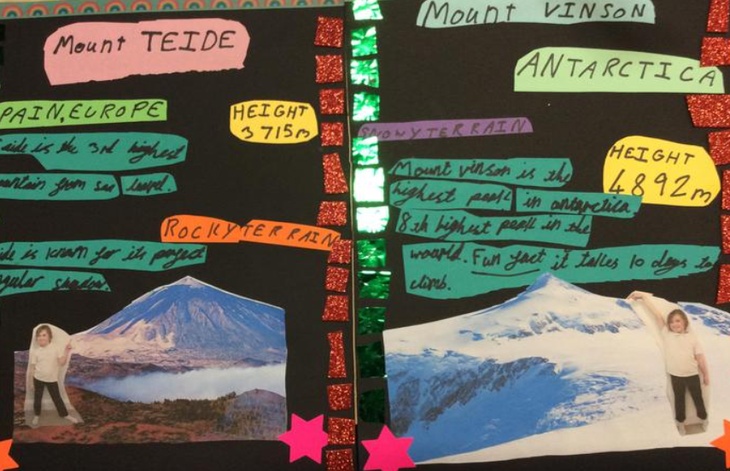 Mount TEIDE
PAIN, EUROPE
HEIGHT
3715m
eide is the 3rd highest
ountain from sea level.
ROCKY TERRAIN
ide is known for its perfect
ngular shadow.
Mount VINSON
ANTARCTICA
SNOWY TERRAIN
HEIGHT
4892m
Mount vinson is the
highest peak in antarctica
8th highest peak in the
woarld. Fun fact it takes 10 days to
climb.